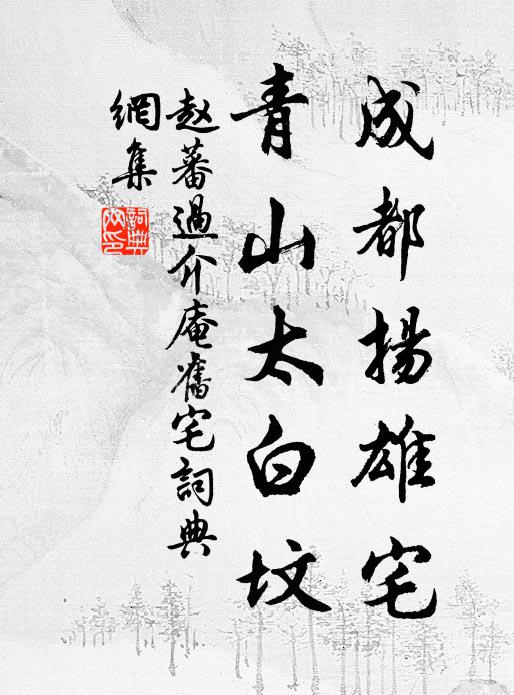 成都揚雄宅
青山太白坟
赵蕃過介庵舊宅詞典
網集
詞典
网印